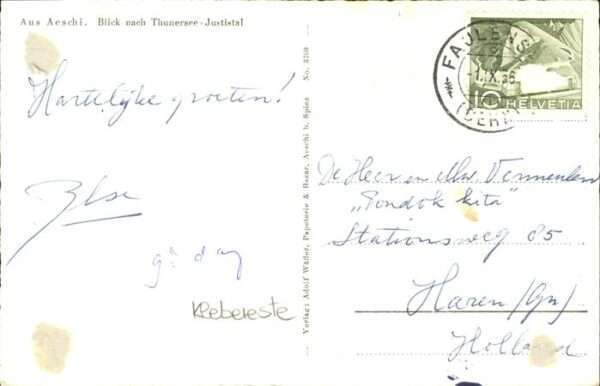 Aus Aeschi. Blick nach Thunersee-Justistal
Hartelijke groeten!
Else
Klebereste
Verlag: Adolf Wäfler, Papeterie & Bazar, Aeschi b. Spiez No. 3269
FAULENS
10 HELVETIA
De Heer en Mw. Vermeulen
„Pondok kita"
Stationsweg 85
Haren (Gn)
Holland